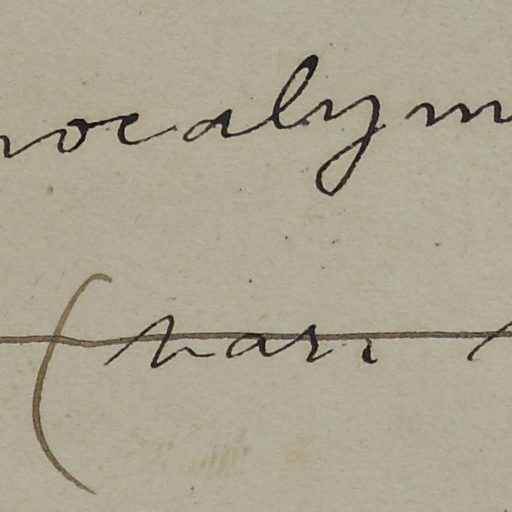 nocalym
(var.